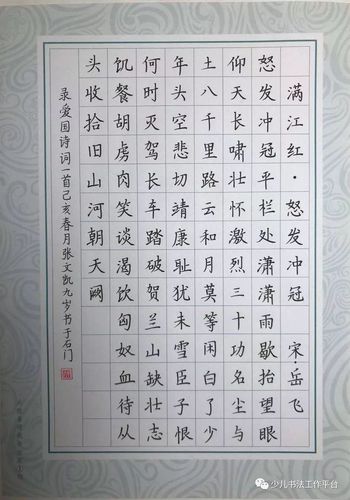 满江红·怒发冲冠 宋·岳飞
怒发冲冠平栏处潇潇雨歇抬望眼
仰天长啸壮怀激烈三十功名尘与
土八千里路云和月莫等闲白了少
年头空悲切靖康耻犹未雪臣子恨
何时灭驾长车踏破贺兰山缺壮志
饥餐胡虏肉笑谈渴饮匈奴血待从
头收拾旧山河朝天阙
录爱国诗词一首己亥春月张文凯九岁书于石门
少儿书法工作平台